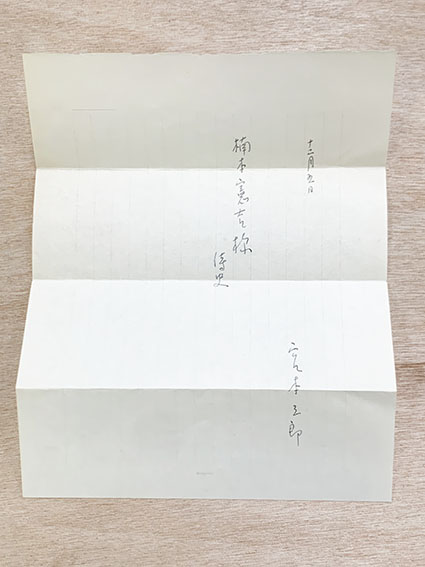 十二月九日
宮本三郎
楠本憲吉様
侍史